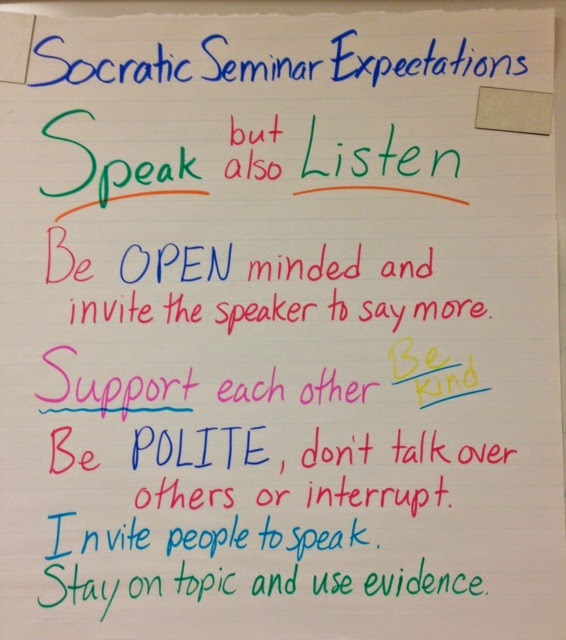 Socratic Seminar Expectations
Speak but also Listen
Be OPEN minded and
invite the speaker to say more.
Support each other Be kind
Be POLITE, don't talk over
others or interrupt.
Invite people to speak.
Stay on topic and use evidence.